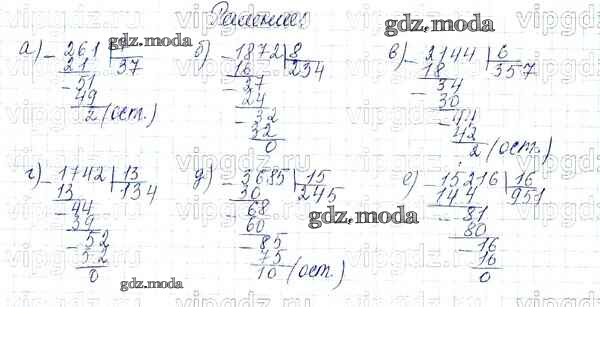 Решение:
gdz.moda
а) - 261
21 37
- 51
49
2 (ост.)
б) - 1872 | 8
16 234
- 27
24
- 32
32
0
в) - 2144 | 6
18 357
- 34
30
- 44
42
2 (ост.)
г) - 1742 | 13
13 134
- 44
39
- 52
52
0
д) - 3685 | 15
30 245
- 68
60
- 85
75
10 (ост.)
е) - 15216 | 16
144 951
- 81
80
- 16
16
0
gdz.moda
gdz.moda
gdz.moda
gdz.moda
vipgdz.ru